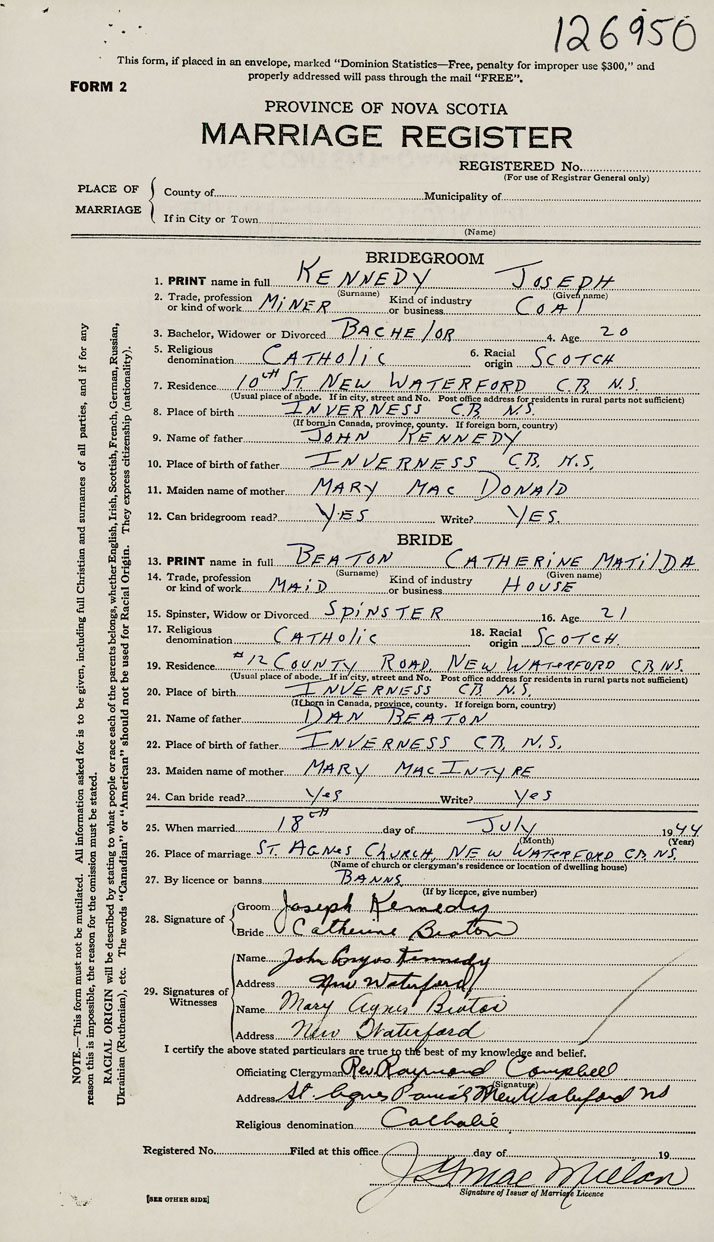 126950
This form, if placed in an envelope, marked "Dominion Statistics—Free, penalty for improper use $300," and
properly addressed will pass through the mail "FREE".
FORM 2
PROVINCE OF NOVA SCOTIA
MARRIAGE REGISTER
REGISTERED No.
(For use of Registrar General only)
PLACE OF MARRIAGE
County of Municipality of
If in City or Town
(Name)
BRIDEGROOM
1. PRINT name in full KENNEDY JOSEPH
(Surname) (Given name)
2. Trade, profession or kind of work MINER Kind of industry or business COAl
3. Bachelor, Widower or Divorced BACHElOR 4. Age 20
5. Religious denomination CATHOliC 6. Racial origin SCOTCH
7. Residence 10TH ST. NEW WATERFORD C.B. N.S.
(Usual place of abode. If in city, street and No. Post office address for residents in rural parts not sufficient)
8. Place of birth INVERNESS C.B. N.S.
(If born in Canada, province, county. If foreign born, country)
9. Name of father JOHN KENNEDY
10. Place of birth of father INVERNESS C.B. N.S.
11. Maiden name of mother MARY MAC DONAlD
12. Can bridegroom read? YES Write? YES.
BRIDE
13. PRINT name in full BEATON CATHERINE MATilDA
(Surname) (Given name)
14. Trade, profession or kind of work MAiD Kind of industry or business HOUSE
15. Spinster, Widow or Divorced SPiNSTER 16. Age 21
17. Religious denomination CATHOliC 18. Racial origin SCOTCH.
19. Residence #12 COUNTY ROAD, NEW WATERFORD C.B. N.S.
(Usual place of abode. If in city, street and No. Post office address for residents in rural parts not sufficient)
20. Place of birth INVERNESS C.B. N.S.
(If born in Canada, province, county. If foreign born, country)
21. Name of father DAN BEATON
22. Place of birth of father INVERNESS C.B. N.S.
23. Maiden name of mother MARY MACINTYRE
24. Can bride read? Yes Write? Yes
25. When married 18th day of July 1944
(Month) (Year)
26. Place of marriage ST. AGNES CHURCH, NEW WATERFORD C.B. N.S.
(Name of church or clergyman's residence or location of dwelling house)
27. By licence or banns BANNS
(If by licence, give number)
28. Signature of
Groom Joseph Kennedy
Bride Catherine Beaton
29. Signatures of Witnesses
Name John Kennedy
Address New Waterford
Name Mary Agnes Beaton
Address New Waterford
I certify the above stated particulars are true to the best of my knowledge and belief.
Officiating Clergyman Rev Raymond Campbell
(Signature)
Address St. Agnes Parish New Waterford NS
Religious denomination Catholic
Registered No. Filed at this office day of 19
MacMillan
Signature of Issuer of Marriage Licence
[SEE OTHER SIDE]
NOTE.—This form must not be mutilated. All information asked for is to be given, including full Christian and surnames of all parties, and if for any
reason this is impossible, the reason for the omission must be stated.
RACIAL ORIGIN will be described by stating to what people or race each of the parents belongs, whether English, Irish, Scottish, French, German, Russian,
Ukrainian (Ruthenian), etc. The words "Canadian" or "American" should not be used for Racial Origin. They express citizenship (nationality).